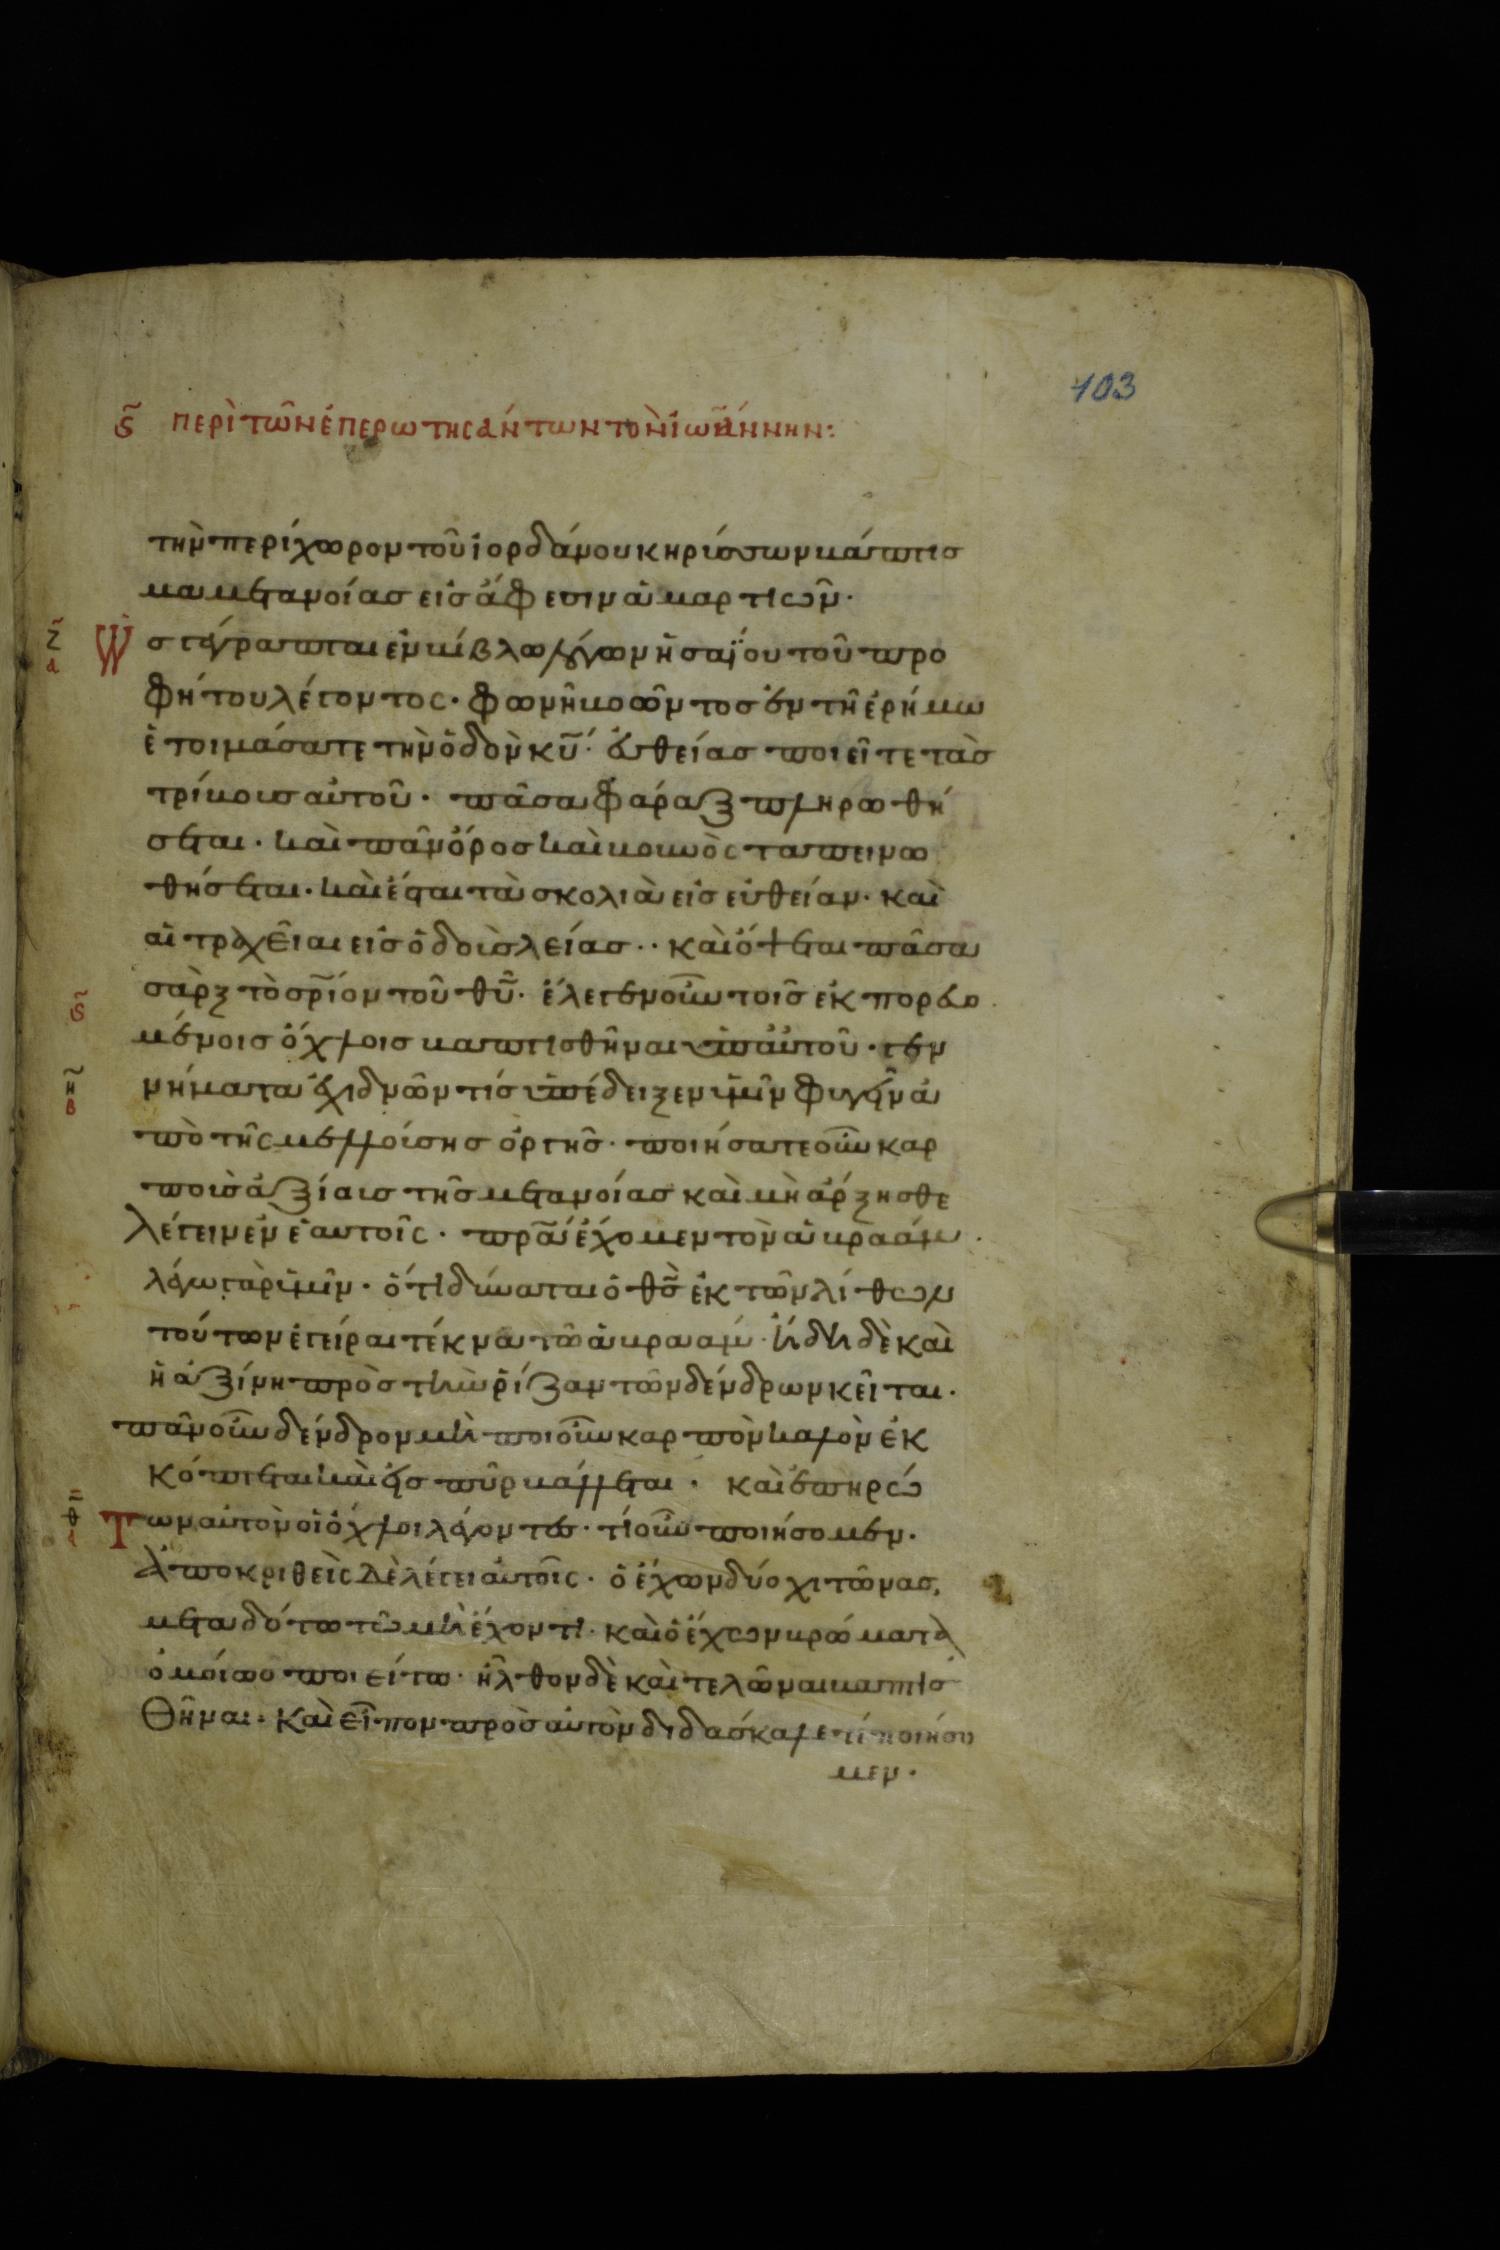 103
ϛ̃ περὶ τῶν ἐπερωτησάντων τὸν ἰω̃άννην:
τὴν περίχωρον τοῦ ἰορδάνου κηρύσσων βάπτισ
μα μετανοίας εἰς ἄφεσιν ἁμαρτιῶν·
ζ̃ α Ὡς γέγραπται ἐν βίβλω λόγων ἡσαΐου τοῦ προ
φήτου λέγοντος· φωνὴ βοῶντος ἐν τῆ ἐρήμω
ἑτοιμάσατε τὴν ὁδὸν κ̅υ̅· εὐθείας ποιεῖτε τὰς
τρίβους αὐτοῦ· πᾶσα φάραξ πληρωθή
σεται· καὶ πᾶν ὄρος καὶ βουνὸς ταπεινω
θήσεται· καὶ ἔσται τὰ σκολιὰ εἰς εὐθείαν· καὶ
αἱ τραχεῖαι εἰς ὁδοὺς λείας·· καὶ ὄψεται πᾶσα
σὰρξ τὸ σ̅ρ̅ίον τοῦ θ̅υ̅· ἔλεγεν οὖν τοῖς ἐκπορευο
ϛ̃
μένοις ὄχλοις βαπτισθῆναι ὑπ αὐτοῦ· γεν
η̃ β νήματα ἐχιδνῶν τίς ὑπέδειξεν ὑμῖν φυγεῖν ἀ
πὸ τῆς μελλούσης ὀργῆς· ποιήσατε οὖν καρ
ποὺς ἀξίους τῆς μετανοίας καὶ μὴ ἄρξησθε
λέγειν ἐν ἑαυτοῖς· π̅ρ̅α ἔχομεν τὸν ἀβραάμ·
λέγω γὰρ ὑμῖν· ὅτι δύναται ὁ θ̅ς̅ ἐκ τῶν λίθων
τούτων ἐγεῖραι τέκνα τῶ ἀβραάμ· ἤδη δὲ καὶ
ἡ ἀξίνη πρὸς τὴν ῥίζαν τῶν δένδρων κεῖται·
πᾶν οὖν δένδρον μὴ ποιοῦν καρπὸν καλὸν ἐκ
κόπτεται καὶ εἰς πῦρ βάλλεται· καὶ ἐπηρώ
θ̃ α Των αὐτὸν οἱ ὄχλοι λέγοντες· τί οὖν ποιήσομεν·
Ἀποκριθεὶς δὲ λέγει αὐτοῖς· ὁ ἔχων δύο χιτῶνας,
μεταδότω τῶ μὴ ἔχοντι· καὶ ὁ ἔχων βρώματα
ὁμοίως ποιείτω· ἦλθον δὲ καὶ τελῶναι βαπτισ
Θῆναι· καὶ εἶπον πρὸς αὐτὸν διδάσκαλε τί ποιήσο
μεν·